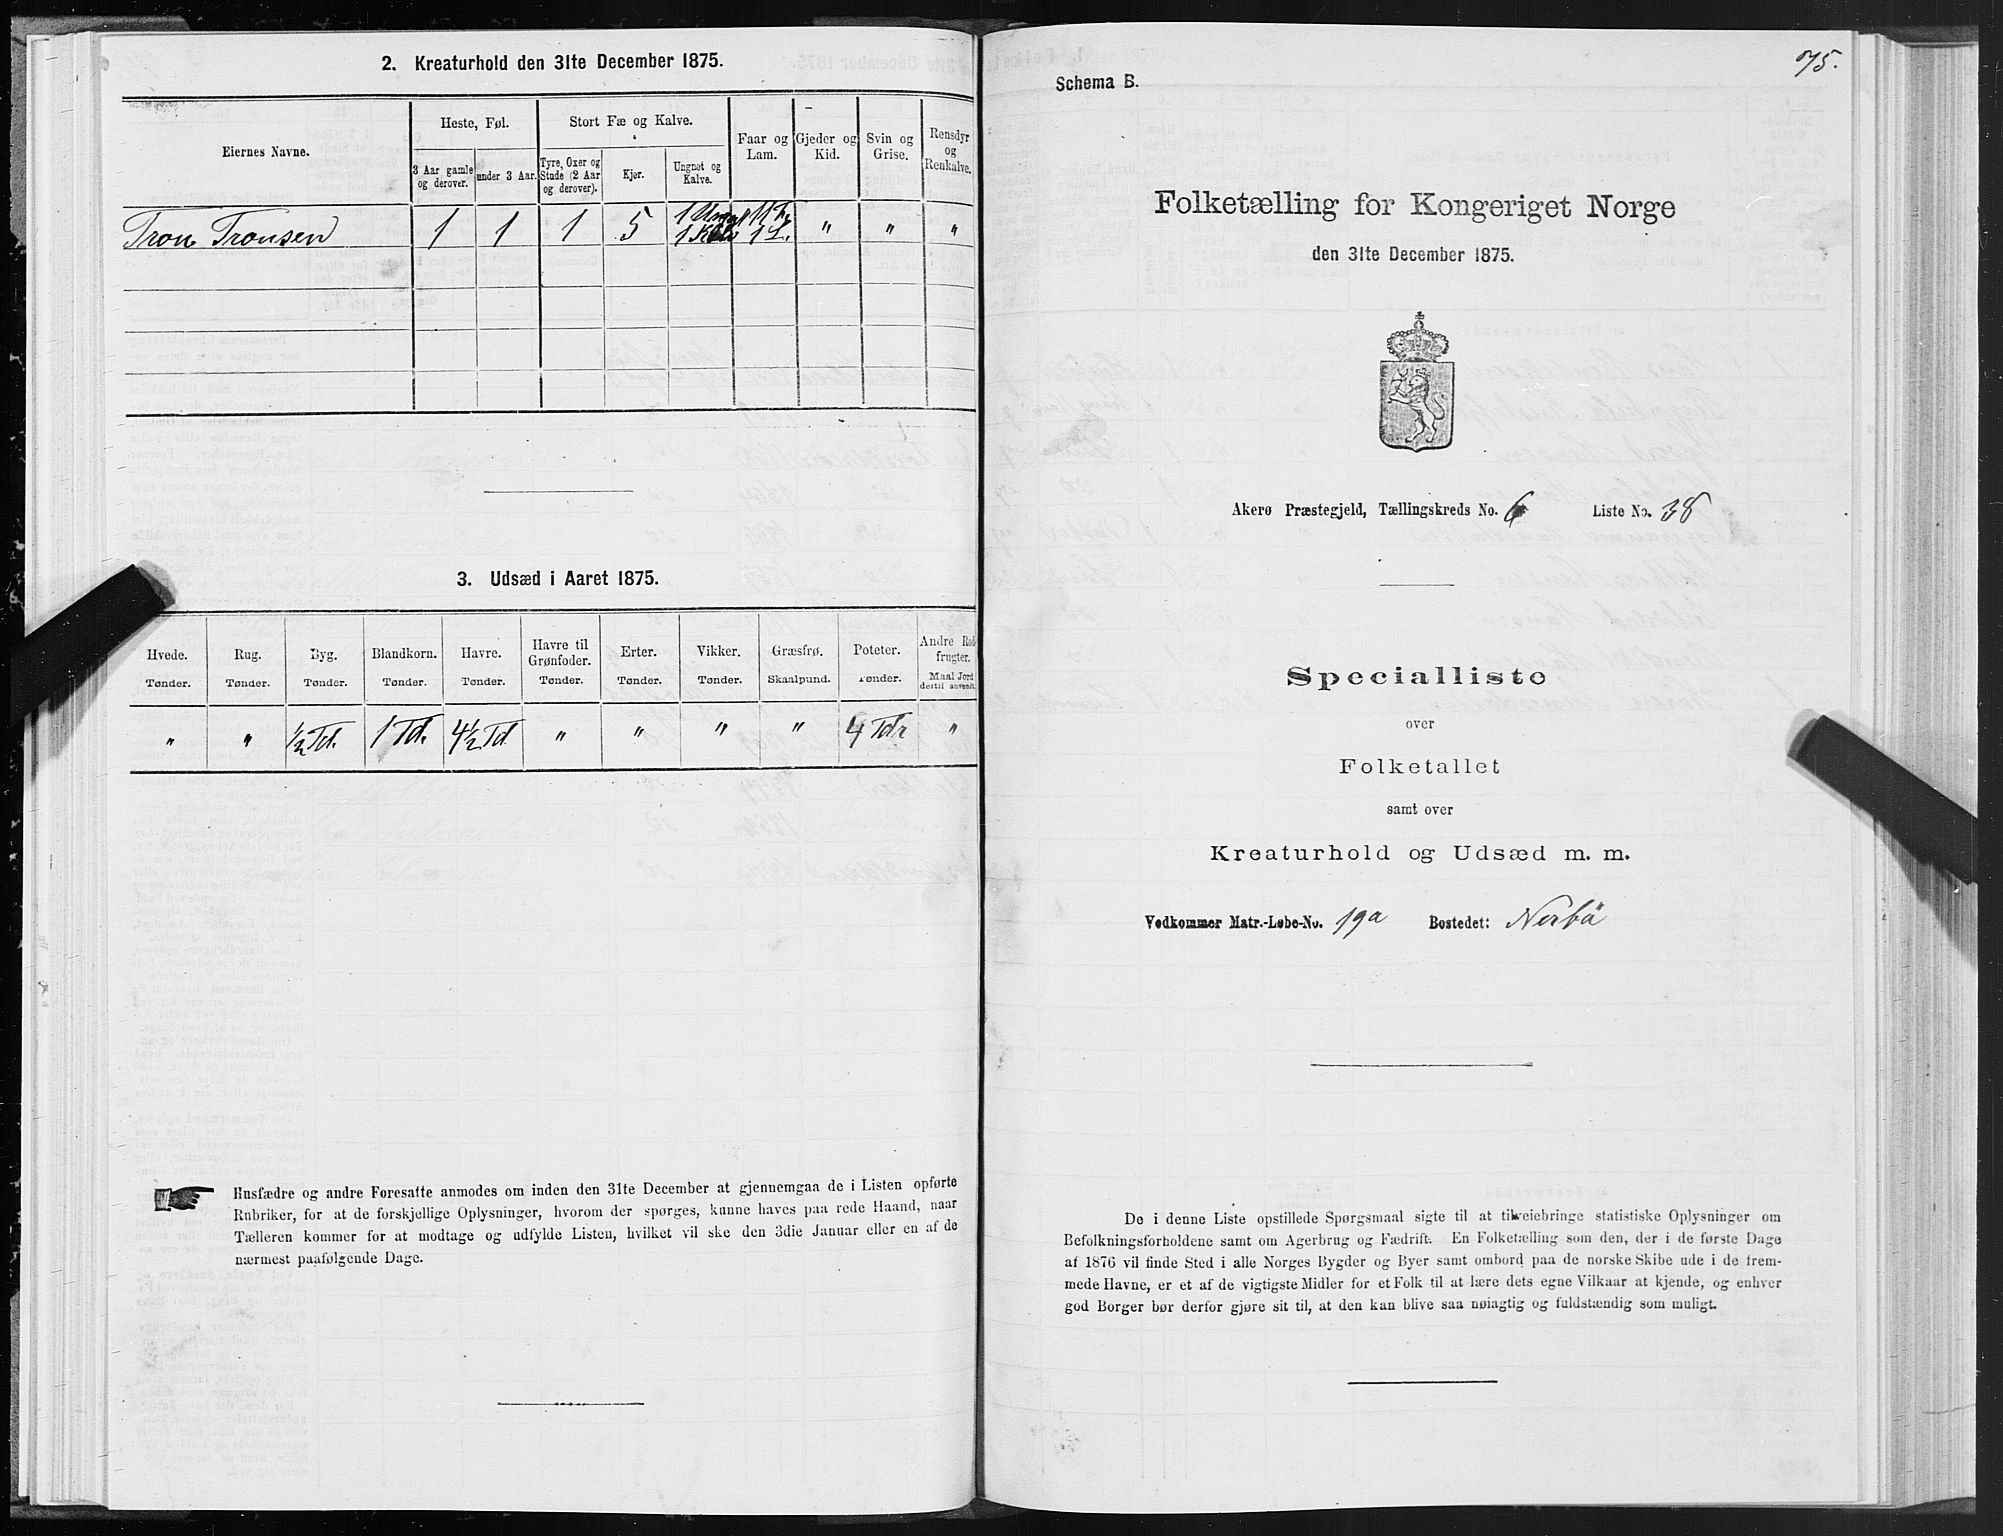 2. Kreaturhold den 31te December 1875.
Eiernes Navne.
Heste, Føl.
Stort Fæ og Kalve.
Faar og Lam.
Gjeder og Kid.
Svin og Grise.
Rensdyr og Renkalve.
3 Aar gamle og derover.
under 3 Aar.
Tyre, Oxer og Stude (2 Aar og derover).
Kjør.
Ungnøt og Kalve.
Tron Tronsen 1 1 1 5 1 Kalv 11 F. 1 L. " " "
3. Udsæd i Aaret 1875.
Hvede. Rug. Byg. Blandkorn. Havre. Havre til Grønfoder. Erter. Vikker. Græsfrø. Poteter. Andre Rodfrugter.
Tønder. Tønder. Tønder. Tønder. Tønder. Tønder. Tønder. Tønder. Skaalpund. Tønder. Maal Jord dertil anvendt.
" " ½ Td. 1 Td. 4½ Td " " " " 4 Tdr "
Husfædre og andre Foresatte anmodes om inden den 31te December at gjennemgaa de i Listen opførte
Rubriker, for at de forskjellige Oplysninger, hvorom der spørges, kunne haves paa rede Haand, naar
Tælleren kommer for at modtage og udfylde Listen, hvilket vil ske den 3die Januar eller en af de
nærmest paafølgende Dage.
75.
Schema B.
Folketælling for Kongeriget Norge
den 31te December 1875.
Akerø Præstegjeld, Tællingskreds No. 6 Liste No. 38
Specialliste
over
Folketallet
samt over
Kreaturhold og Udsæd m. m.
Vedkommer Matr.-Løbe-No. 19a Bostedet: Nerbö
De i denne Liste opstillede Spørgsmaal sigte til at tilveiebringe statistiske Oplysninger om
Befolkningsforholdene samt om Agerbrug og Fædrift. En Folketælling som den, der i de første Dage
af 1876 vil finde Sted i alle Norges Bygder og Byer samt ombord paa de norske Skibe ude i de frem-
mede Havne, er et af de vigtigste Midler for et Folk til at lære dets egne Vilkaar at kjende, og enhver
god Borger bør derfor gjøre sit til, at den kan blive saa nøiagtig og fuldstændig som muligt.